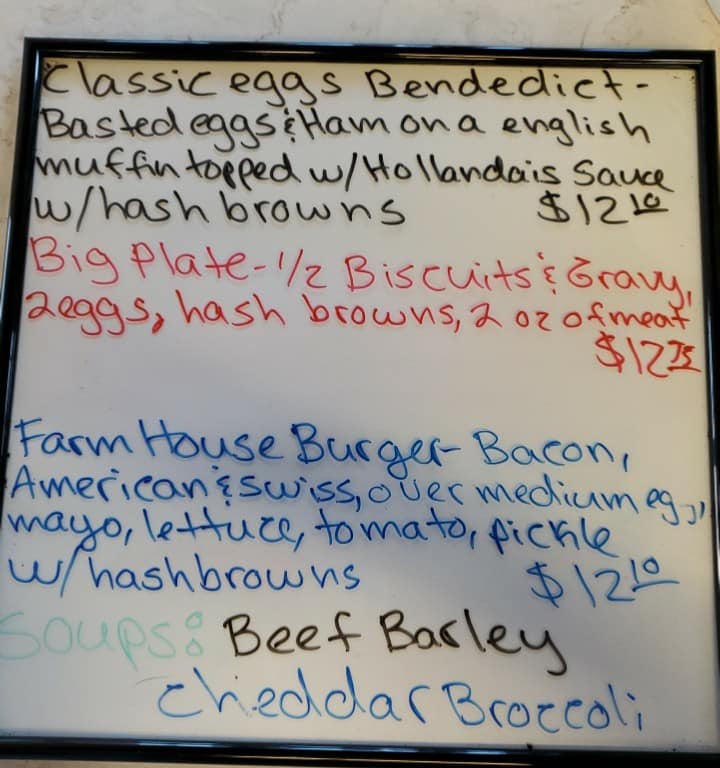 Classic eggs Bendedict-
Basted eggs & Ham on a english
muffin topped w/Hollandais Sauce
w/hash browns $12.10
Big Plate-1/2 Biscuits & Gravy,
2 eggs, hash browns, 2 oz of meat
$12.75
Farm House Burger- Bacon,
American & Swiss, over medium egg,
mayo, lettuce, tomato, pickle
w/hashbrowns $12.10
Soups: Beef Barley
Cheddar Broccoli